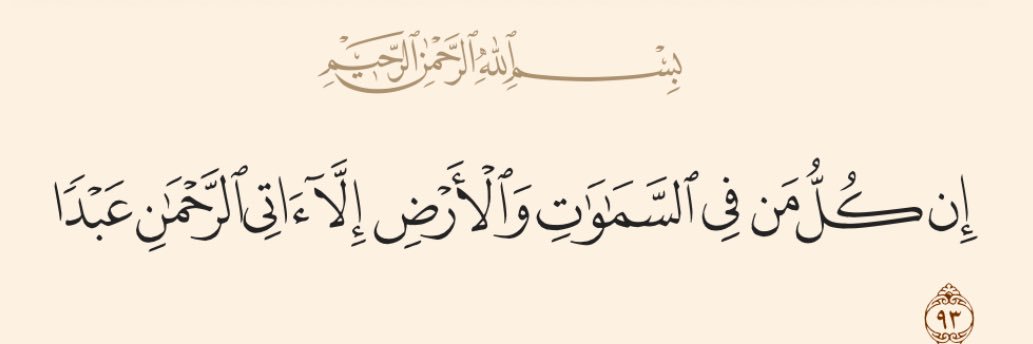 بِسْمِ ٱللَّهِ ٱلرَّحْمَٰنِ ٱلرَّحِيمِ
إِن كُلُّ مَن فِى ٱلسَّمَٰوَٰتِ وَٱلْأَرْضِ إِلَّآ ءَاتِى ٱلرَّحْمَٰنِ عَبْدًا
٩٣